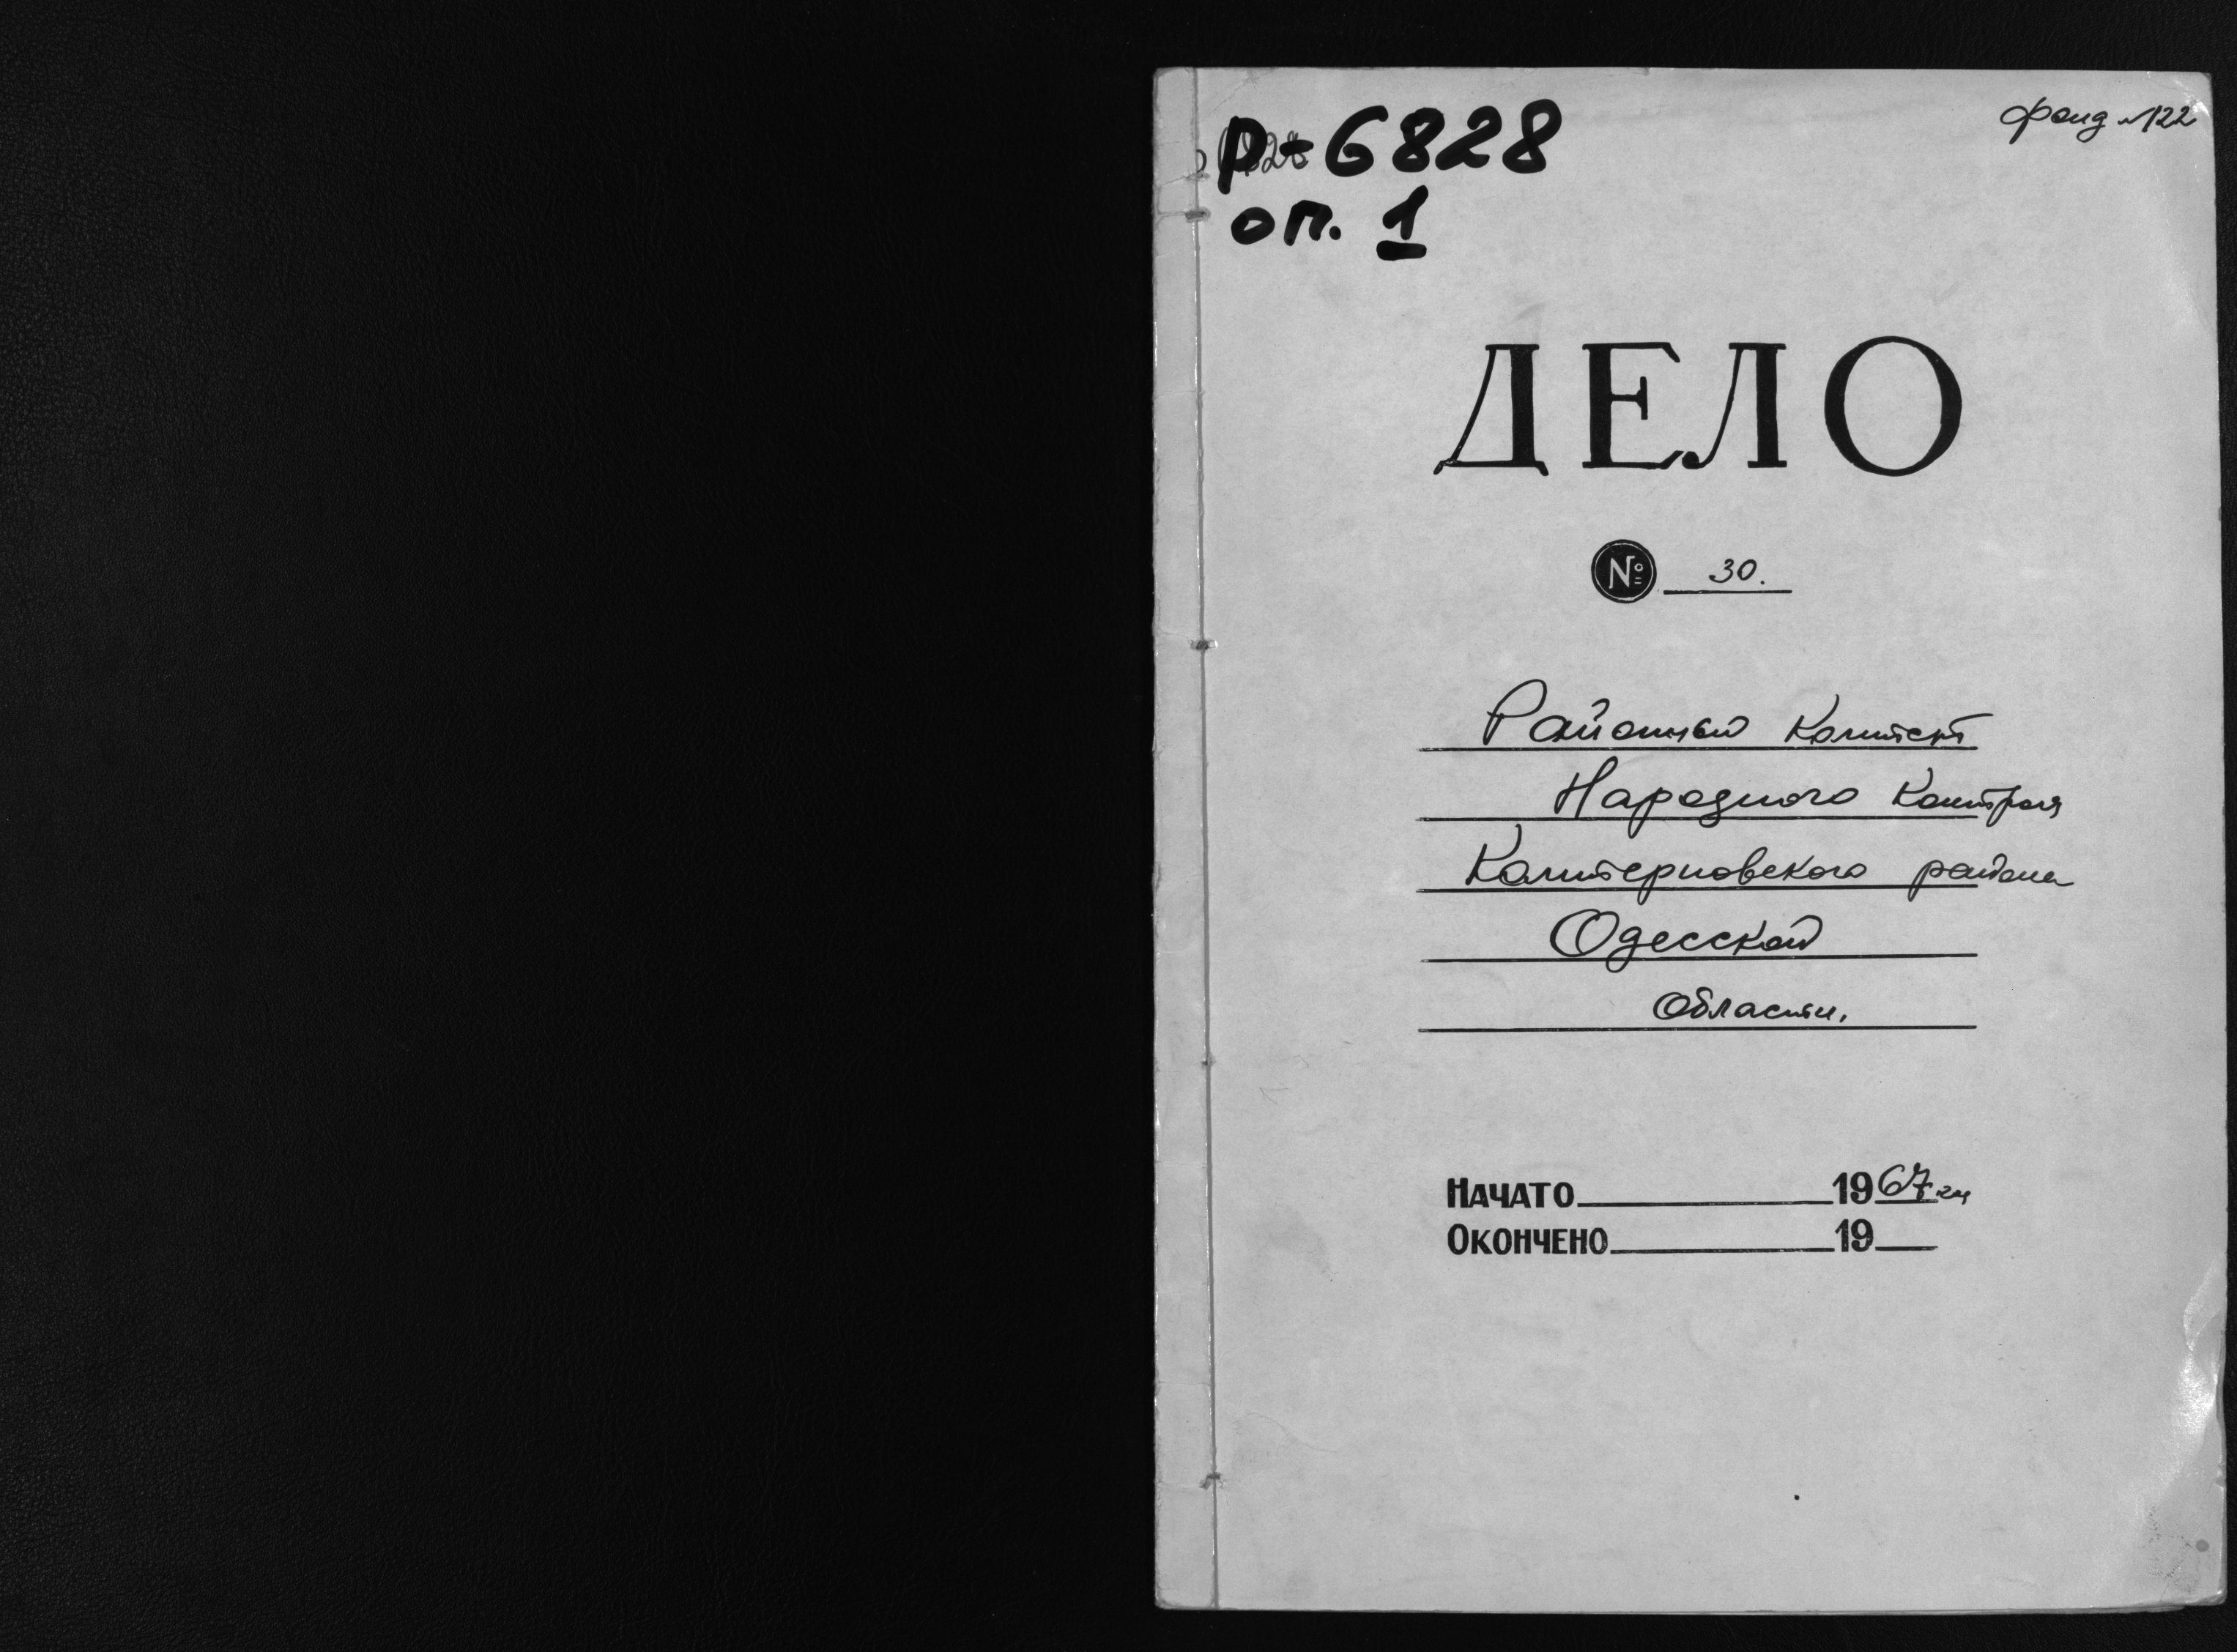 фонд №122
Р-6828
оп. 1
ДЕЛО
№ 30.
Районный Комитет
Народного Контроля
Коминтерновского района
Одесской
области.
НАЧАТО 1967 г.
ОКОНЧЕНО 19